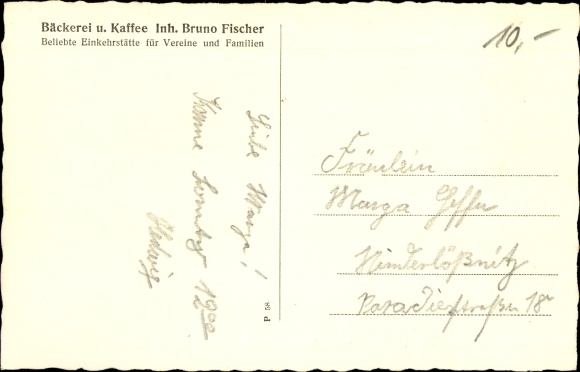 Bäckerei u. Kaffee Inh. Bruno Fischer
Beliebte Einkehrstätte für Vereine und Familien
10,–
Liebe Marga!
Komme Sonntag 19⁰⁰
Hedwig
P 58
Fräulein
Marga
Niederlößnitz
Paradiesstraße 18